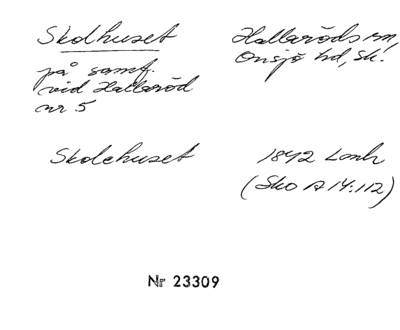 Skolhuset
på samf.
vid Hallaröd
nr 5
Hallaröds sn,
Onsjö hd, Sk.
Skolehuset
1842 Lanh
(Sko A 14:112)
Nr 23309